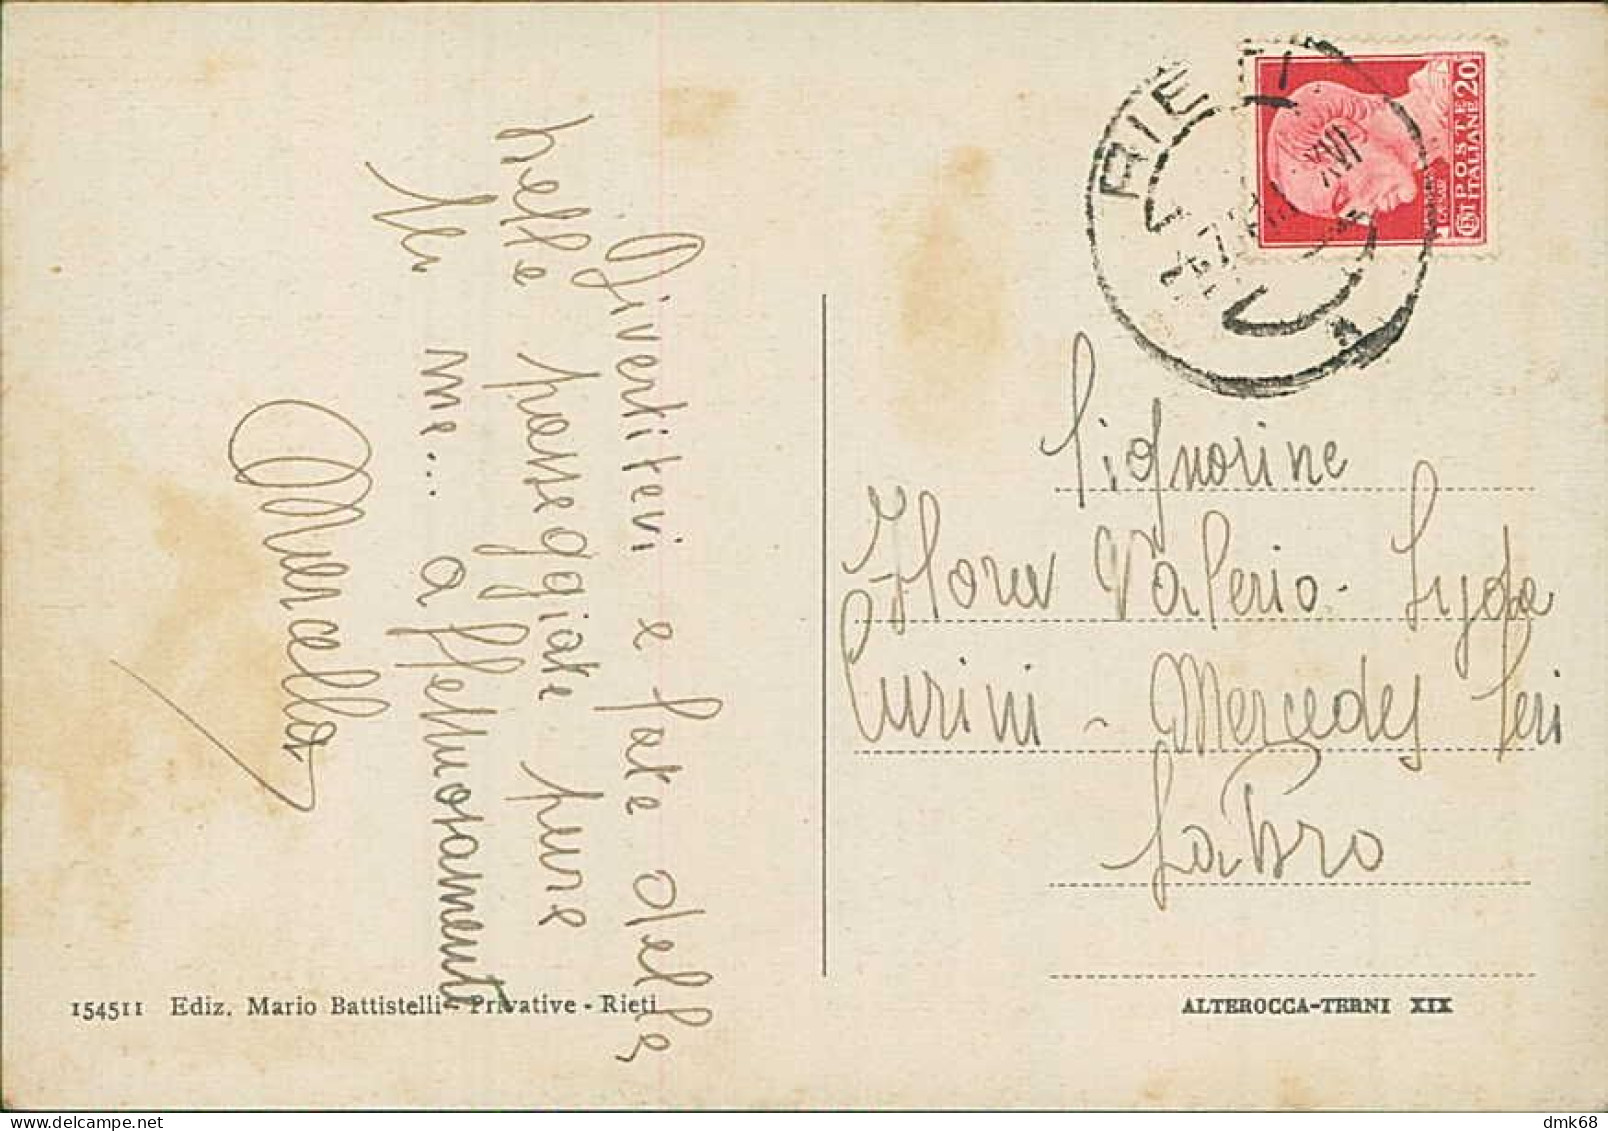 Divertitevi e fate delle
belle passeggiate pure
per me... affettuosamente
Marcella
RIETI
XVI
POSTE
ITALIANE 20
Signorine
Flora Valerio - Lyda
Curini - Mercedes Peri
Labro
154511 Ediz. Mario Battistelli - Privative - Rieti
ALTEROCCA-TERNI XIX
dmk68